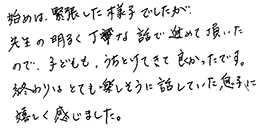 始めは、緊張した様子でしたが、
先生の明るく丁寧な話で進めて頂いた
ので、子どもも、うちとけてきて良かったです。
終わりはとても楽しそうに話していた息子に
嬉しく感じました。